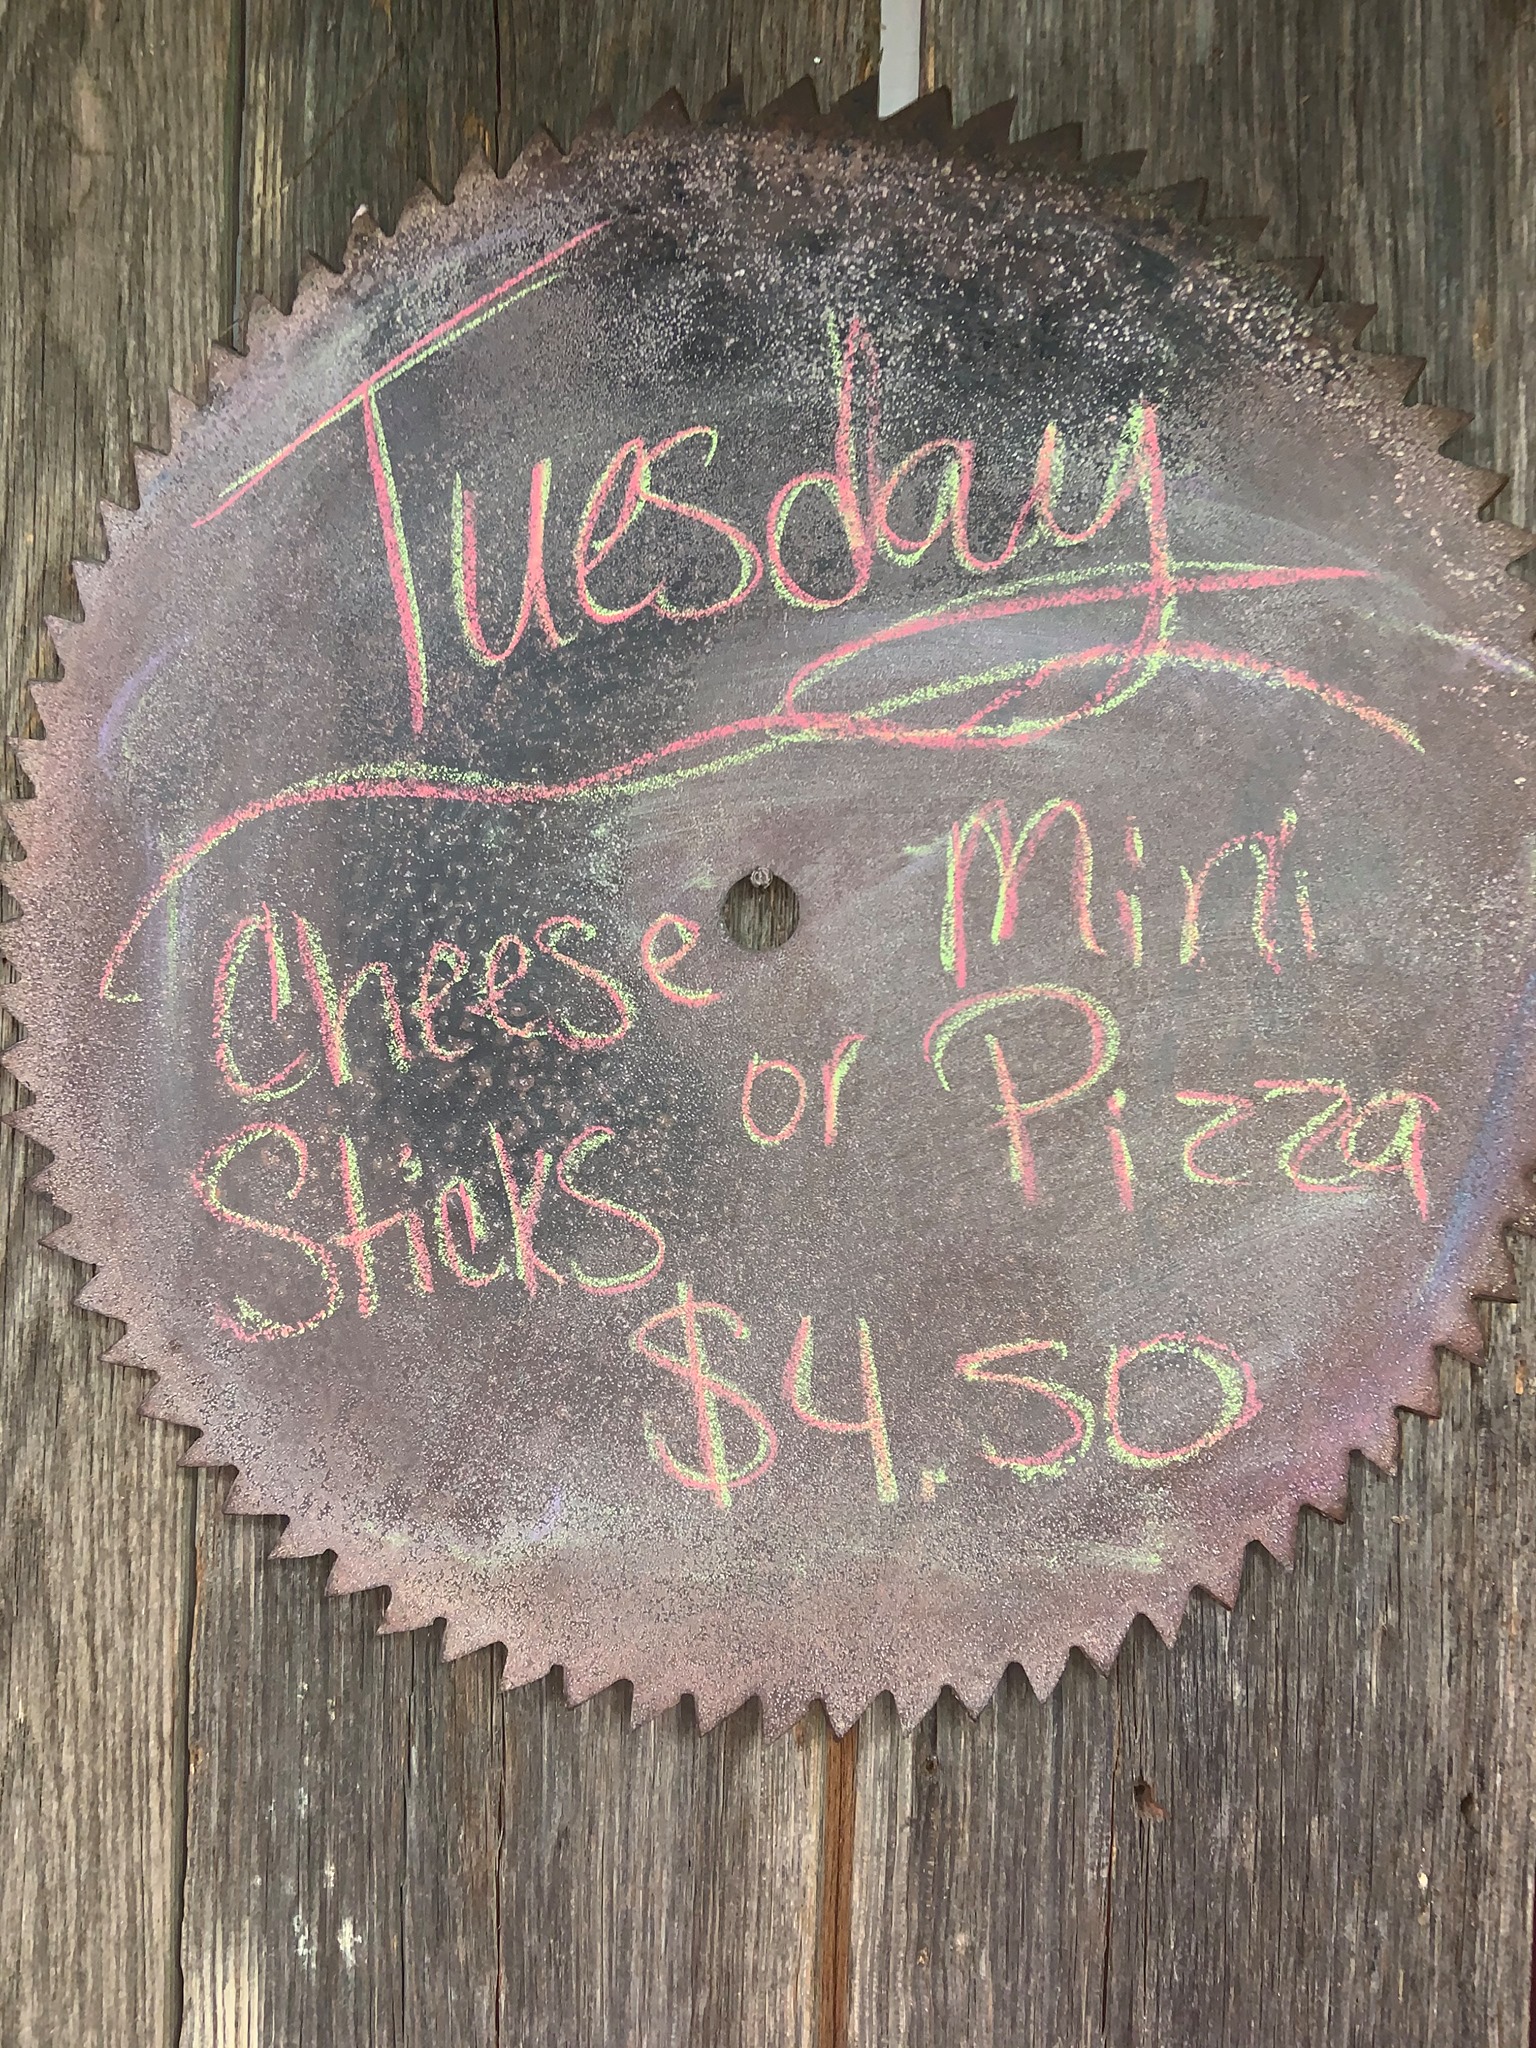 Tuesday
Cheese
Sticks
or
Mini
Pizza
$4.50